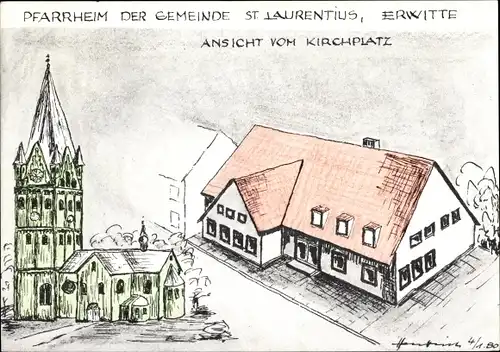 PFARRHEIM DER GEMEINDE ST. LAURENTIUS, ERWITTE
ANSICHT VOM KIRCHPLATZ
4/1.80